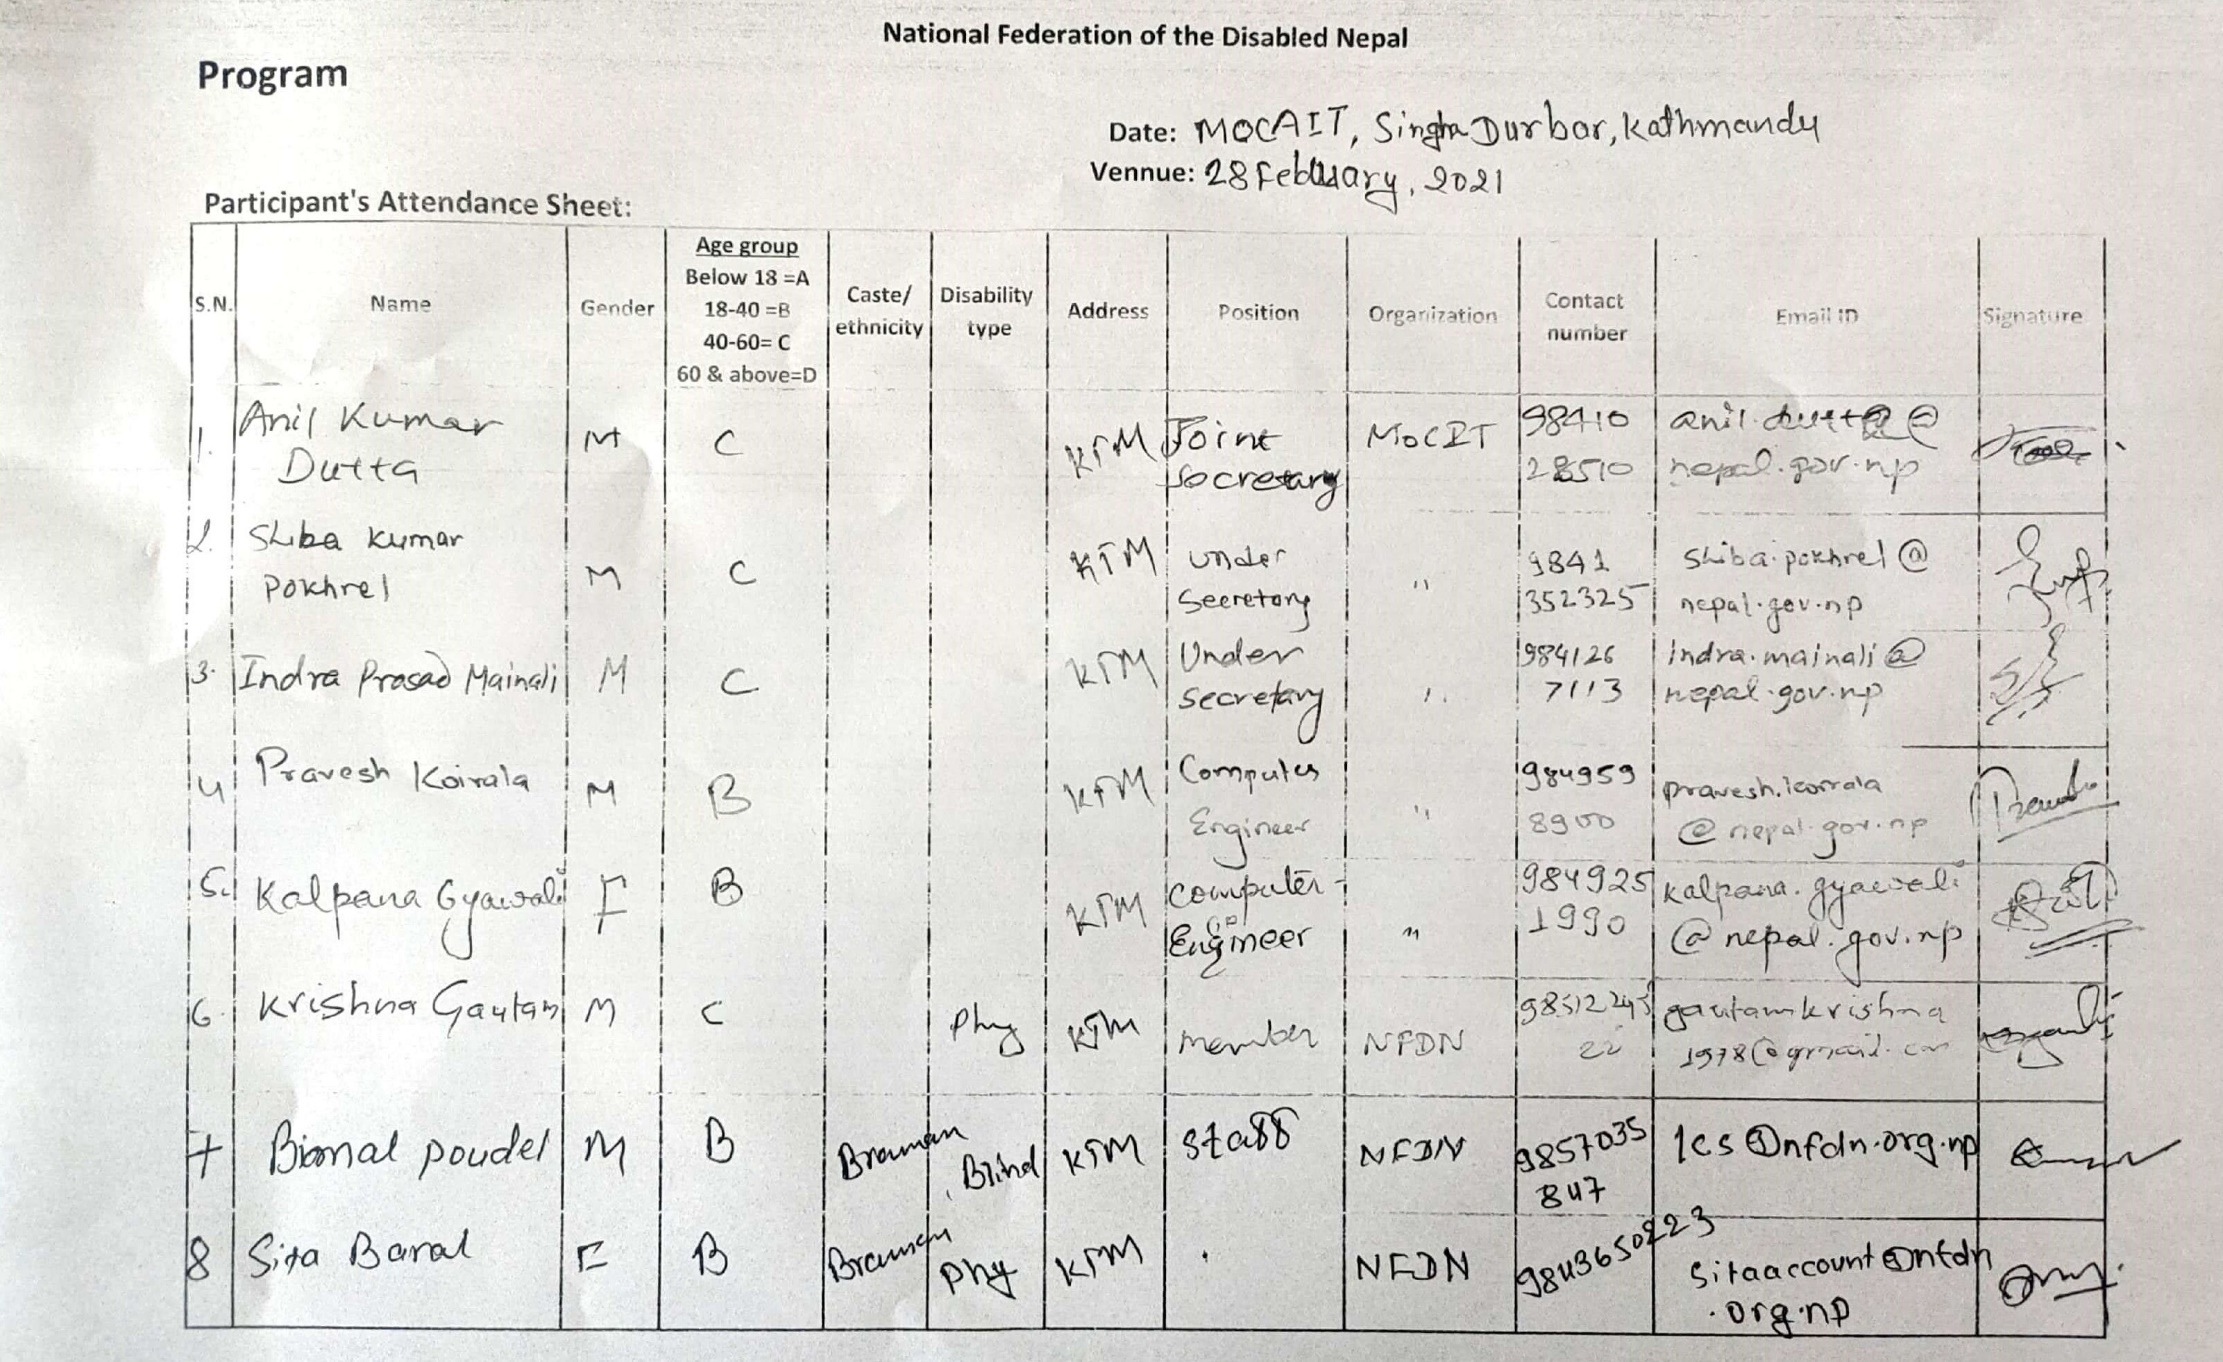 National Federation of the Disabled Nepal
Program
Date: MOCAIT, Singha Durbar, Kathmandu
Vennue: 28 February, 2021
Participant's Attendance Sheet:
S.N. Name Gender Age group Below 18 =A 18-40 =B 40-60= C 60 & above=D Caste/ ethnicity Disability type Address Position Organization Contact number Email ID Signature
1. Anil Kumar Dutta M C KTM Joint Secretary MoCIT 98410 28510 anil.dutta@ nepal.gov.np
2. Shiba Kumar Pokhrel M C KTM Under Secretary " 9841 352325 shiba.pokhrel@ nepal.gov.np
3. Indra Prasad Mainali M C KTM Under Secretary " 984126 7113 indra.mainali@ nepal.gov.np
4 Pravesh Koirala M B KTM Computer Engineer " 984959 8900 pravesh.koirala @nepal.gov.np
5. Kalpana Gyawali F B KTM Computer Engineer " 984925 1990 kalpana.gyawali @nepal.gov.np
6. Krishna Gautam M C Phy KTM member NFDN gautamkrishna 1978@gmail.com
7 Bimal poudel M B Braman Blind KTM staff NFDN 9857035 847 ics@nfdn.org.np
8 Sita Baral F B Braman Phy KTM NFDN 9843650223 sitaaccount@nfdn .org.np